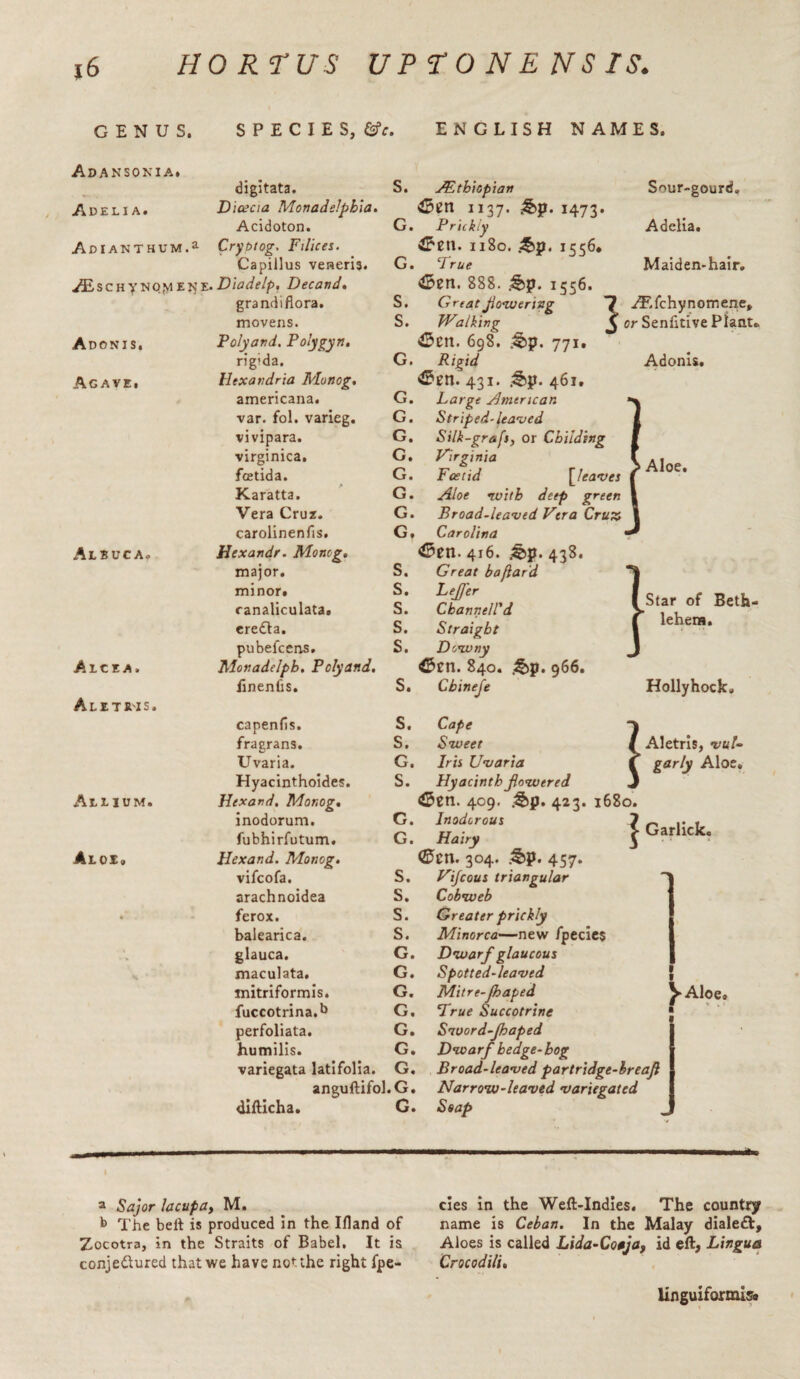 16 HORTUS UPTONENSIS.
GENUS. SPECIES, &c. ENGLISH NAMES.
ADANSONIA.
digitata. S. Æthiopian Sour-gourd.
ADELIA. Diœcia Monadelphia. Gen 1137. Sp. 1473.
Acidoton. G. Prickly Adelia.
ADIANTHUM.ᵃ Cryptog. Filices. Gen. 1180. Sp. 1556.
Capillus veneris. G. True Maiden-hair.
ÆSCHYNOMENE. Diadelp. Decand. Gen. 888. Sp. 1556.
grandiflora. S. Great flowering } Æſchynomene,
movens. S. Walking } or Senſitive Plant.
ADONIS. Polyand. Polygyn. Gen. 698. Sp. 771.
rigida. G. Rigid Adonis.
AGAVE. Hexandria Monog. Gen. 431. Sp. 461.
americana. G. Large American
var. fol. varieg. G. Striped-leaved
vivipara. G. Silk-graſs, or Childing
virginica. G. Virginia
fœtida. G. Fœtid [leaves } Aloe.
Karatta. G. Aloe with deep green
Vera Cruz. G. Broad-leaved Vera Cruz
carolinenſis. G. Carolina
ALBUCA. Hexandr. Monog. Gen. 416. Sp. 438.
major. S. Great baſtard
minor. S. Leſſer
canaliculata. S. Channell'd } Star of Beth-
erecta. S. Straight lehem.
pubeſcens. S. Downy
ALCEA. Monadelph. Polyand. Gen. 840. Sp. 966.
ſinenſis. S. Chineſe Hollyhock.
ALETRIS.
capenſis. S. Cape
fragrans. S. Sweet } Aletris, vul-
Uvaria. G. Iris Uvaria garly Aloe.
Hyacinthoides. S. Hyacinth flowered
ALLIUM. Hexand. Monog. Gen. 409. Sp. 423. 1680.
inodorum. G. Inodorous } Garlick.
ſubhirſutum. G. Hairy
ALOE. Hexand. Monog. Gen. 304. Sp. 457.
viſcoſa. S. Viſcous triangular
arachnoidea S. Cobweb
ferox. S. Greater prickly
balearica. S. Minorca—new ſpecies
glauca. G. Dwarf glaucous
maculata. G. Spotted-leaved
mitriformis. G. Mitre-ſhaped } Aloe.
ſuccotrina.ᵇ G. True Succotrine
perfoliata. G. Sword-ſhaped
humilis. G. Dwarf hedge-hog
variegata latifolia. G. Broad-leaved partridge-breaſt
anguſtifol. G. Narrow-leaved variegated
diſticha. G. Soap
ᵃ Sajor lacupa, M.
ᵇ The beſt is produced in the Iſland of
Zocotra, in the Straits of Babel. It is
conjectured that we have not the right ſpe-
cies in the Weſt-Indies. The country
name is Ceban. In the Malay dialect,
Aloes is called Lida-Coaja, id eſt, Lingua
Crocodili.
linguiformis.